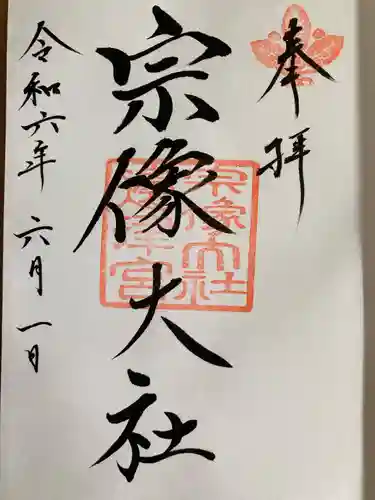 奉拝
宗像大社
宗像大社
辺津宮
令和六年 六月 一日